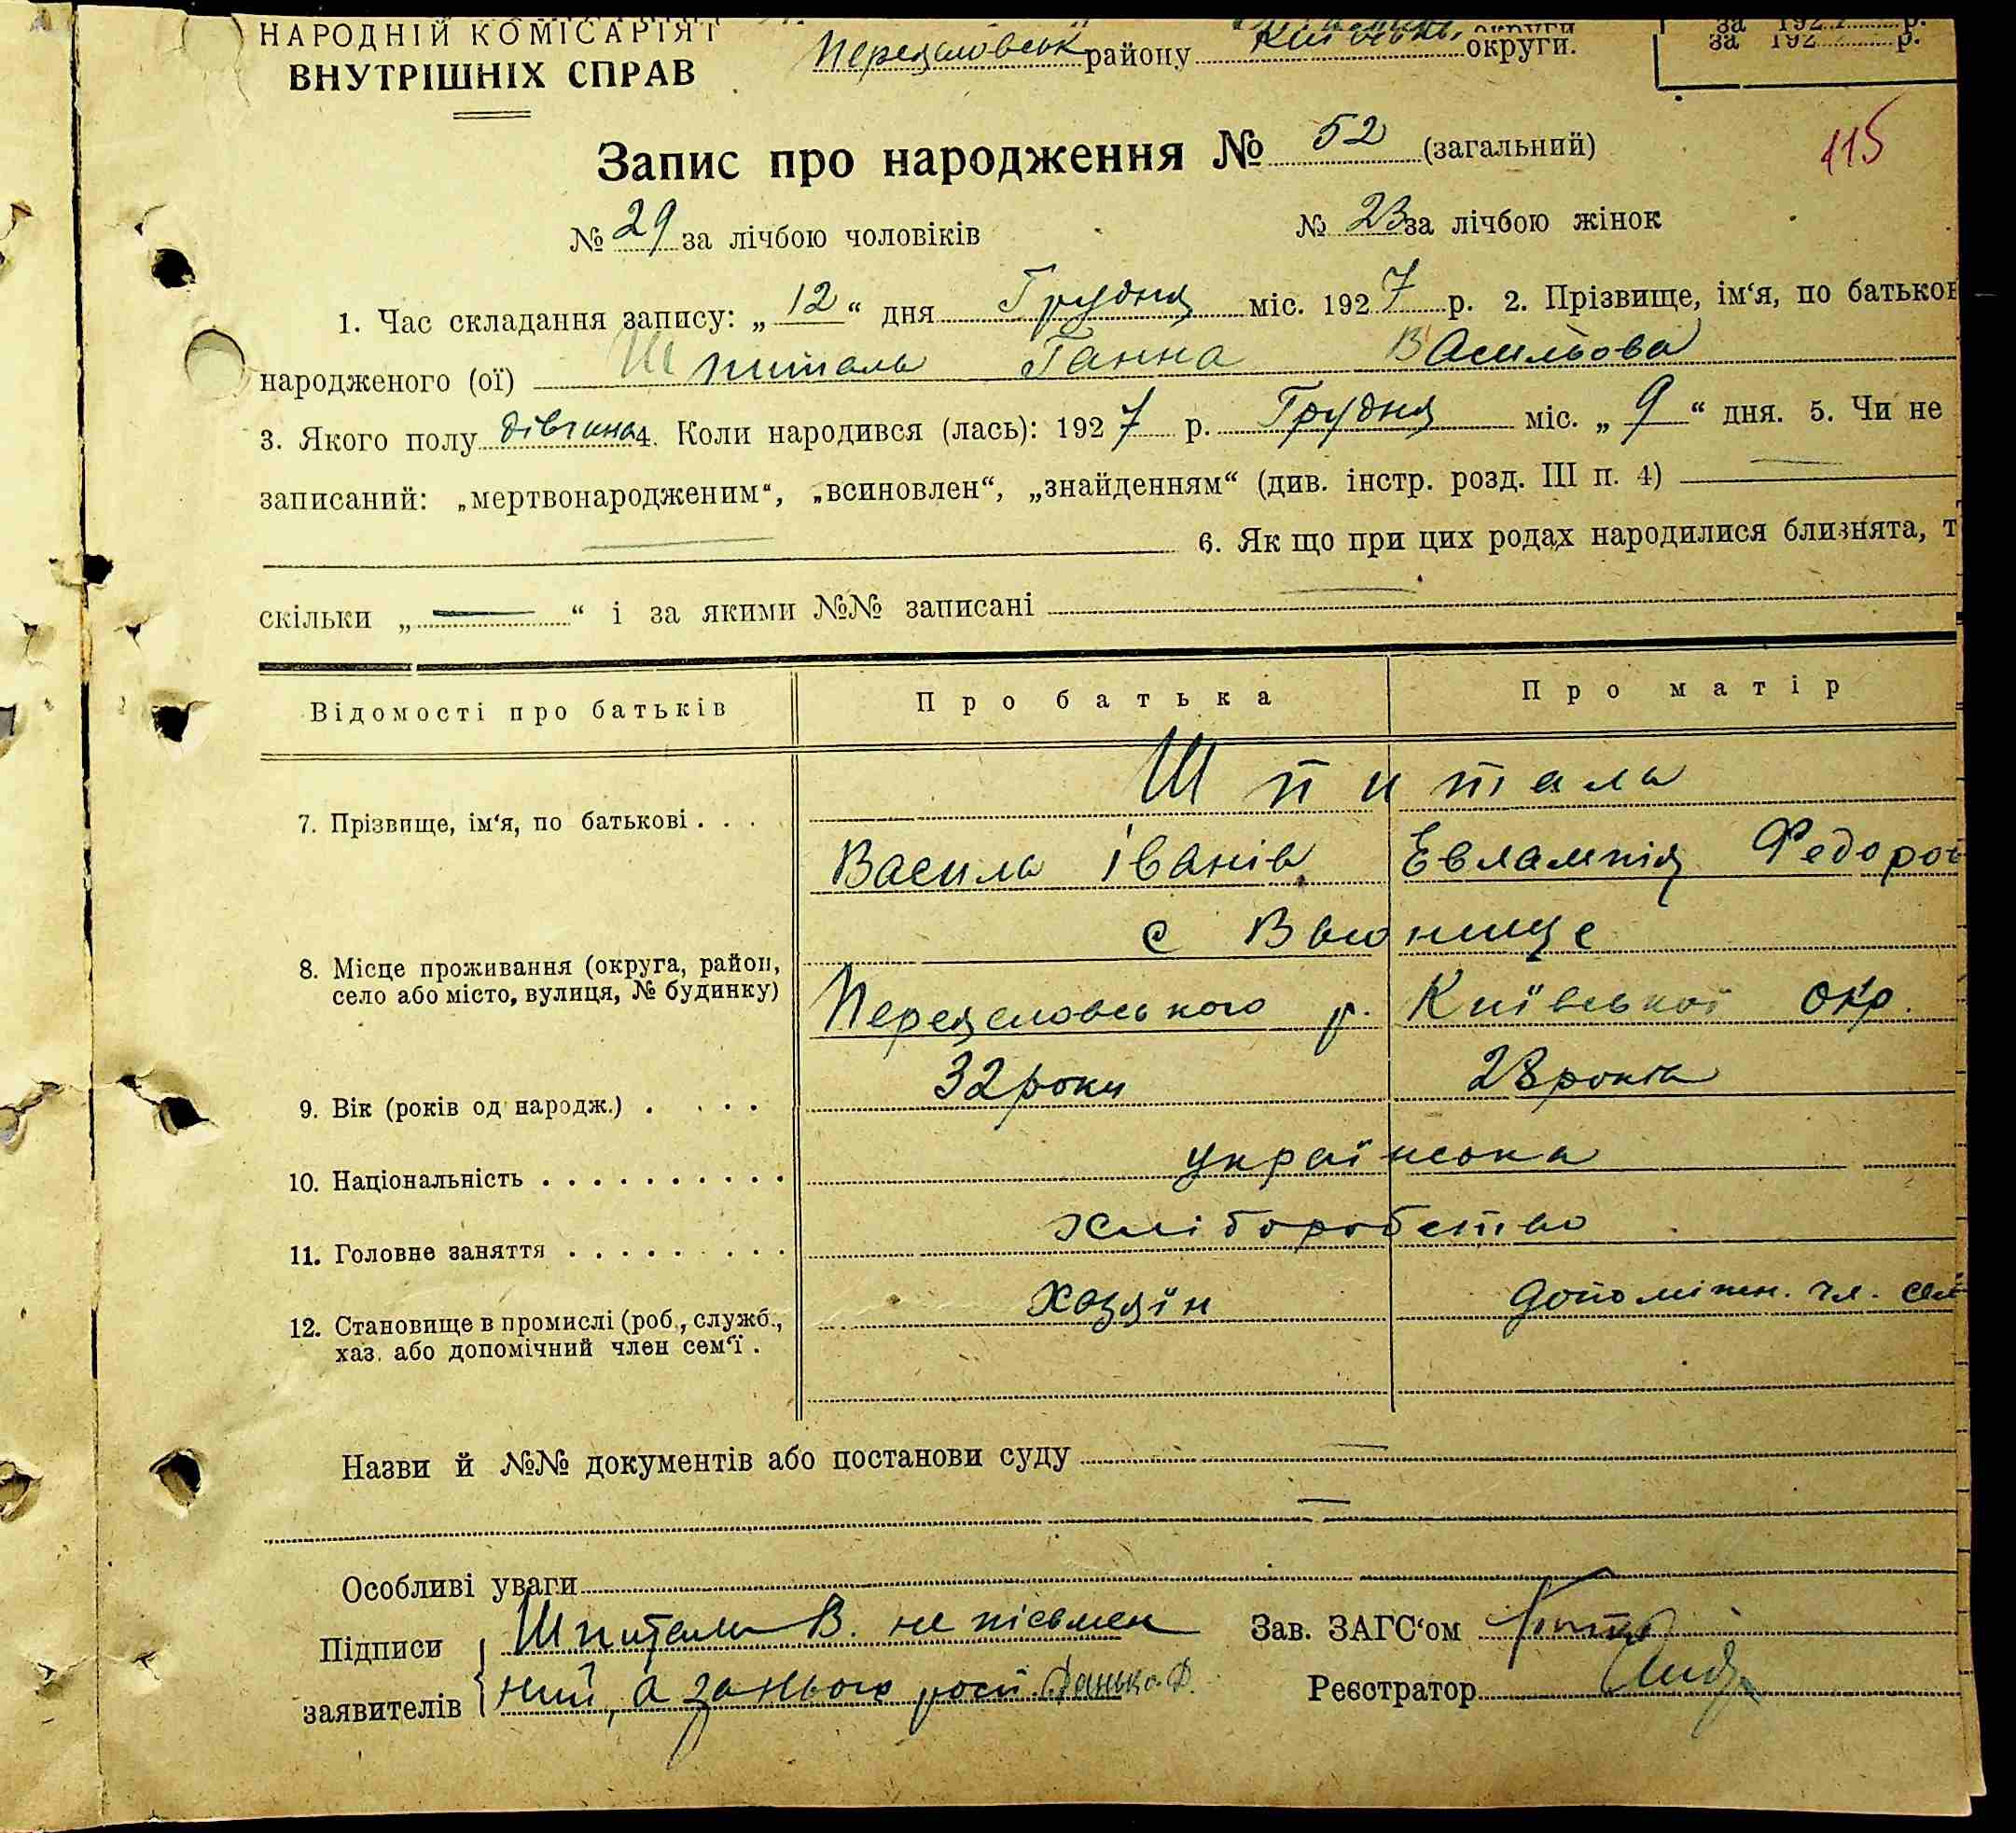 НАРОДНІЙ КОМІСАРІЯТ
ВНУТРІШНІХ СПРАВ
Переясловськ району Київськ. округи.
за 192 р.
115
Запис про народження № 52 (загальний)
№ 29 за лічбою чоловіків № 23 за лічбою жінок
1. Час складання запису: „ 12 “ дня Грудня міс. 1927 р. 2. Прізвище, ім‘я, по батьков
народженого (ої) Шпиталь Ганна Васильова
3. Якого полу дівчина 4. Коли народився (лась): 1927 р. Грудня міс. „ 9 “ дня. 5. Чи не
записаний: „мертвонародженим“, „всиновлен“, „знайденням“ (див. інстр. розд. III п. 4) —
6. Як що при цих родах народилися близнята, т
скільки „ — “ і за якими №№ записані —
Відомості про батьків Про батька Про матір
7. Прізвище, ім‘я, по батькові . . . Шпиталь
Василь Іванів Евлампія Федоров
с Вьюнище
8. Місце проживання (округа, район,
село або місто, вулиця, № будинку)
Переяславського р. Київської окр.
9. Вік (років од народж.) . . . . 32 роки 28 років
10. Національність . . . . . . . . . . українська
11. Головне заняття . . . . . . . . хліборобство
12. Становище в промислі (роб., служб., Хазяїн допоміжн. чл. сем
хаз. або допомічний член сем‘ї .
Назви й №№ документів або постанови суду —
—
Особливі уваги
Підписи Шпиталь В. не пісьмен Зав. ЗАГС‘ом
заявителів ний, а за нього росп. Данько Ф. Реєстратор